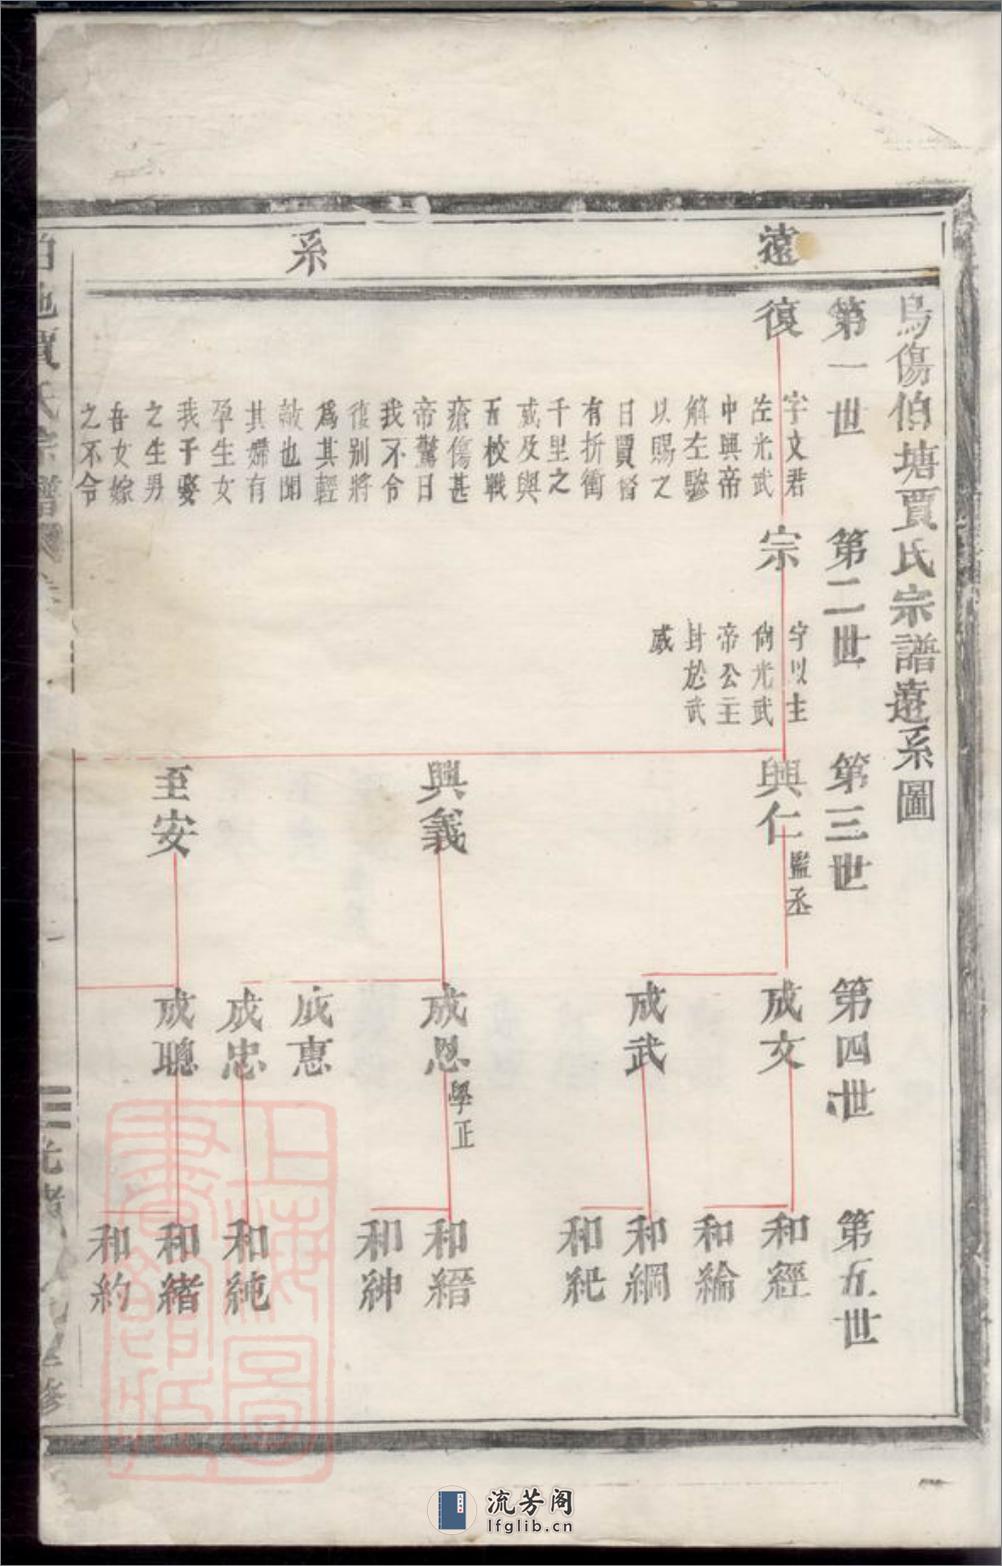 遠系
烏傷伯塘賈氏宗譜遠系圖
第一世
第二世
第三世
第四世
第五世
復
字文君
佐光武
中興帝
解左驂
以賜之
曰賈督
有折衝
千里之
威及與
五校戰
瘡傷甚
帝驚曰
我不令
復別將
爲其輕
敵也聞
其婦有
孕生女
我子娶
之生男
吾女嫁
之不令
宗
字以主
尚光武
帝公主
封於武
威
興仁
監丞
興義
至安
成文
成武
成恩
學正
成惠
成忠
成聰
和經
和綸
和綱
和紀
和縉
和紳
和純
和緒
和約
上海圖書館藏
流芳阁
lfglib.cn